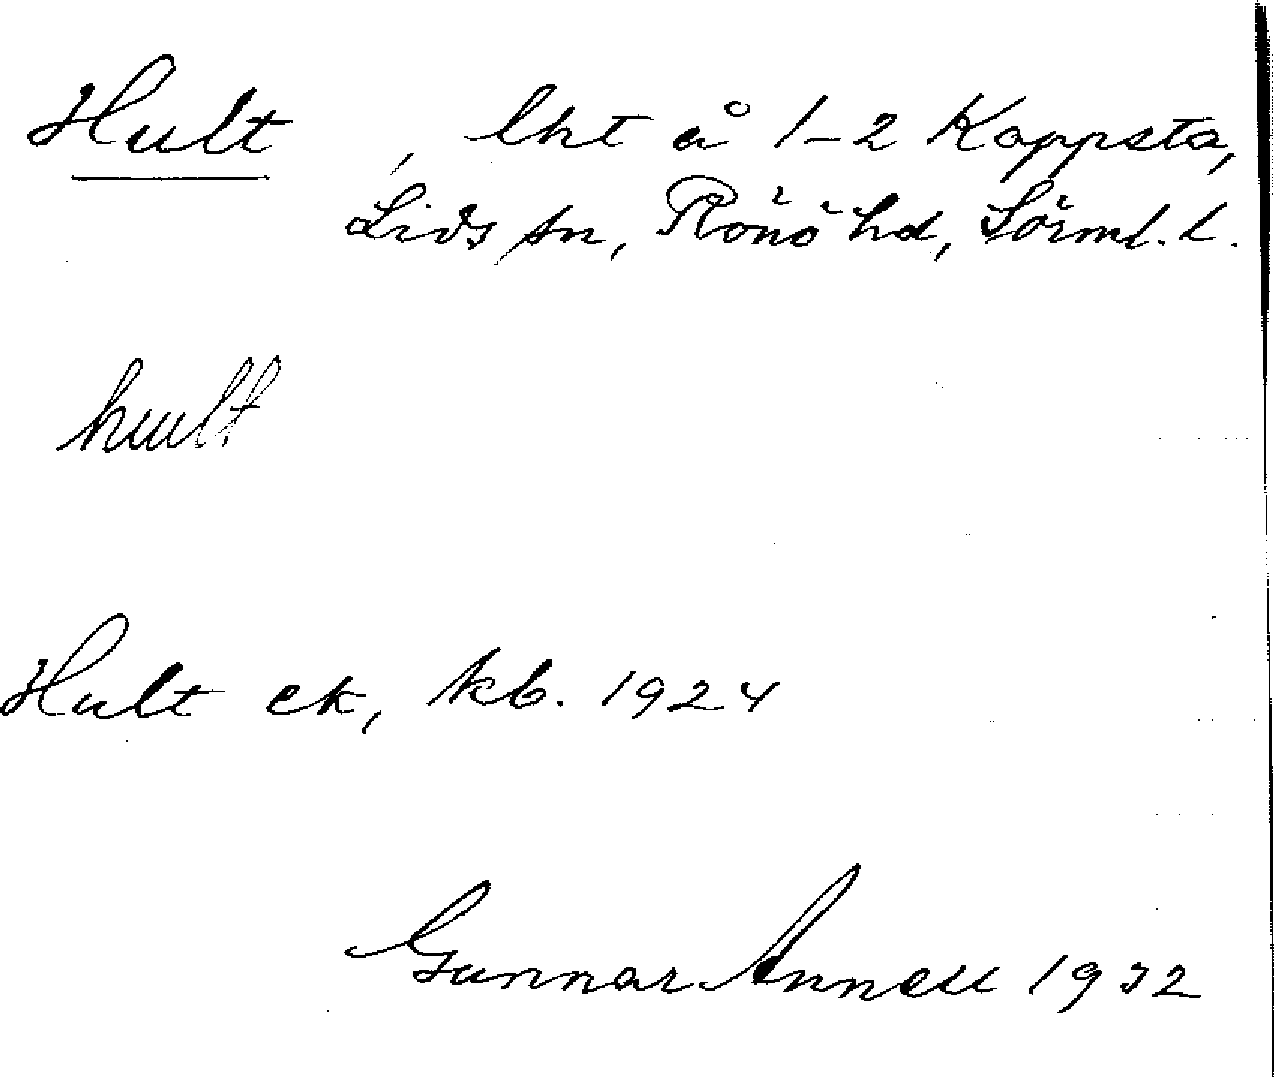 Hult, lht å 1-2 Kappsta,
Lids sn, Rönö hd, Sörml. l.
hult
Hult ek, kb. 1924
Gunnar Annell 1932